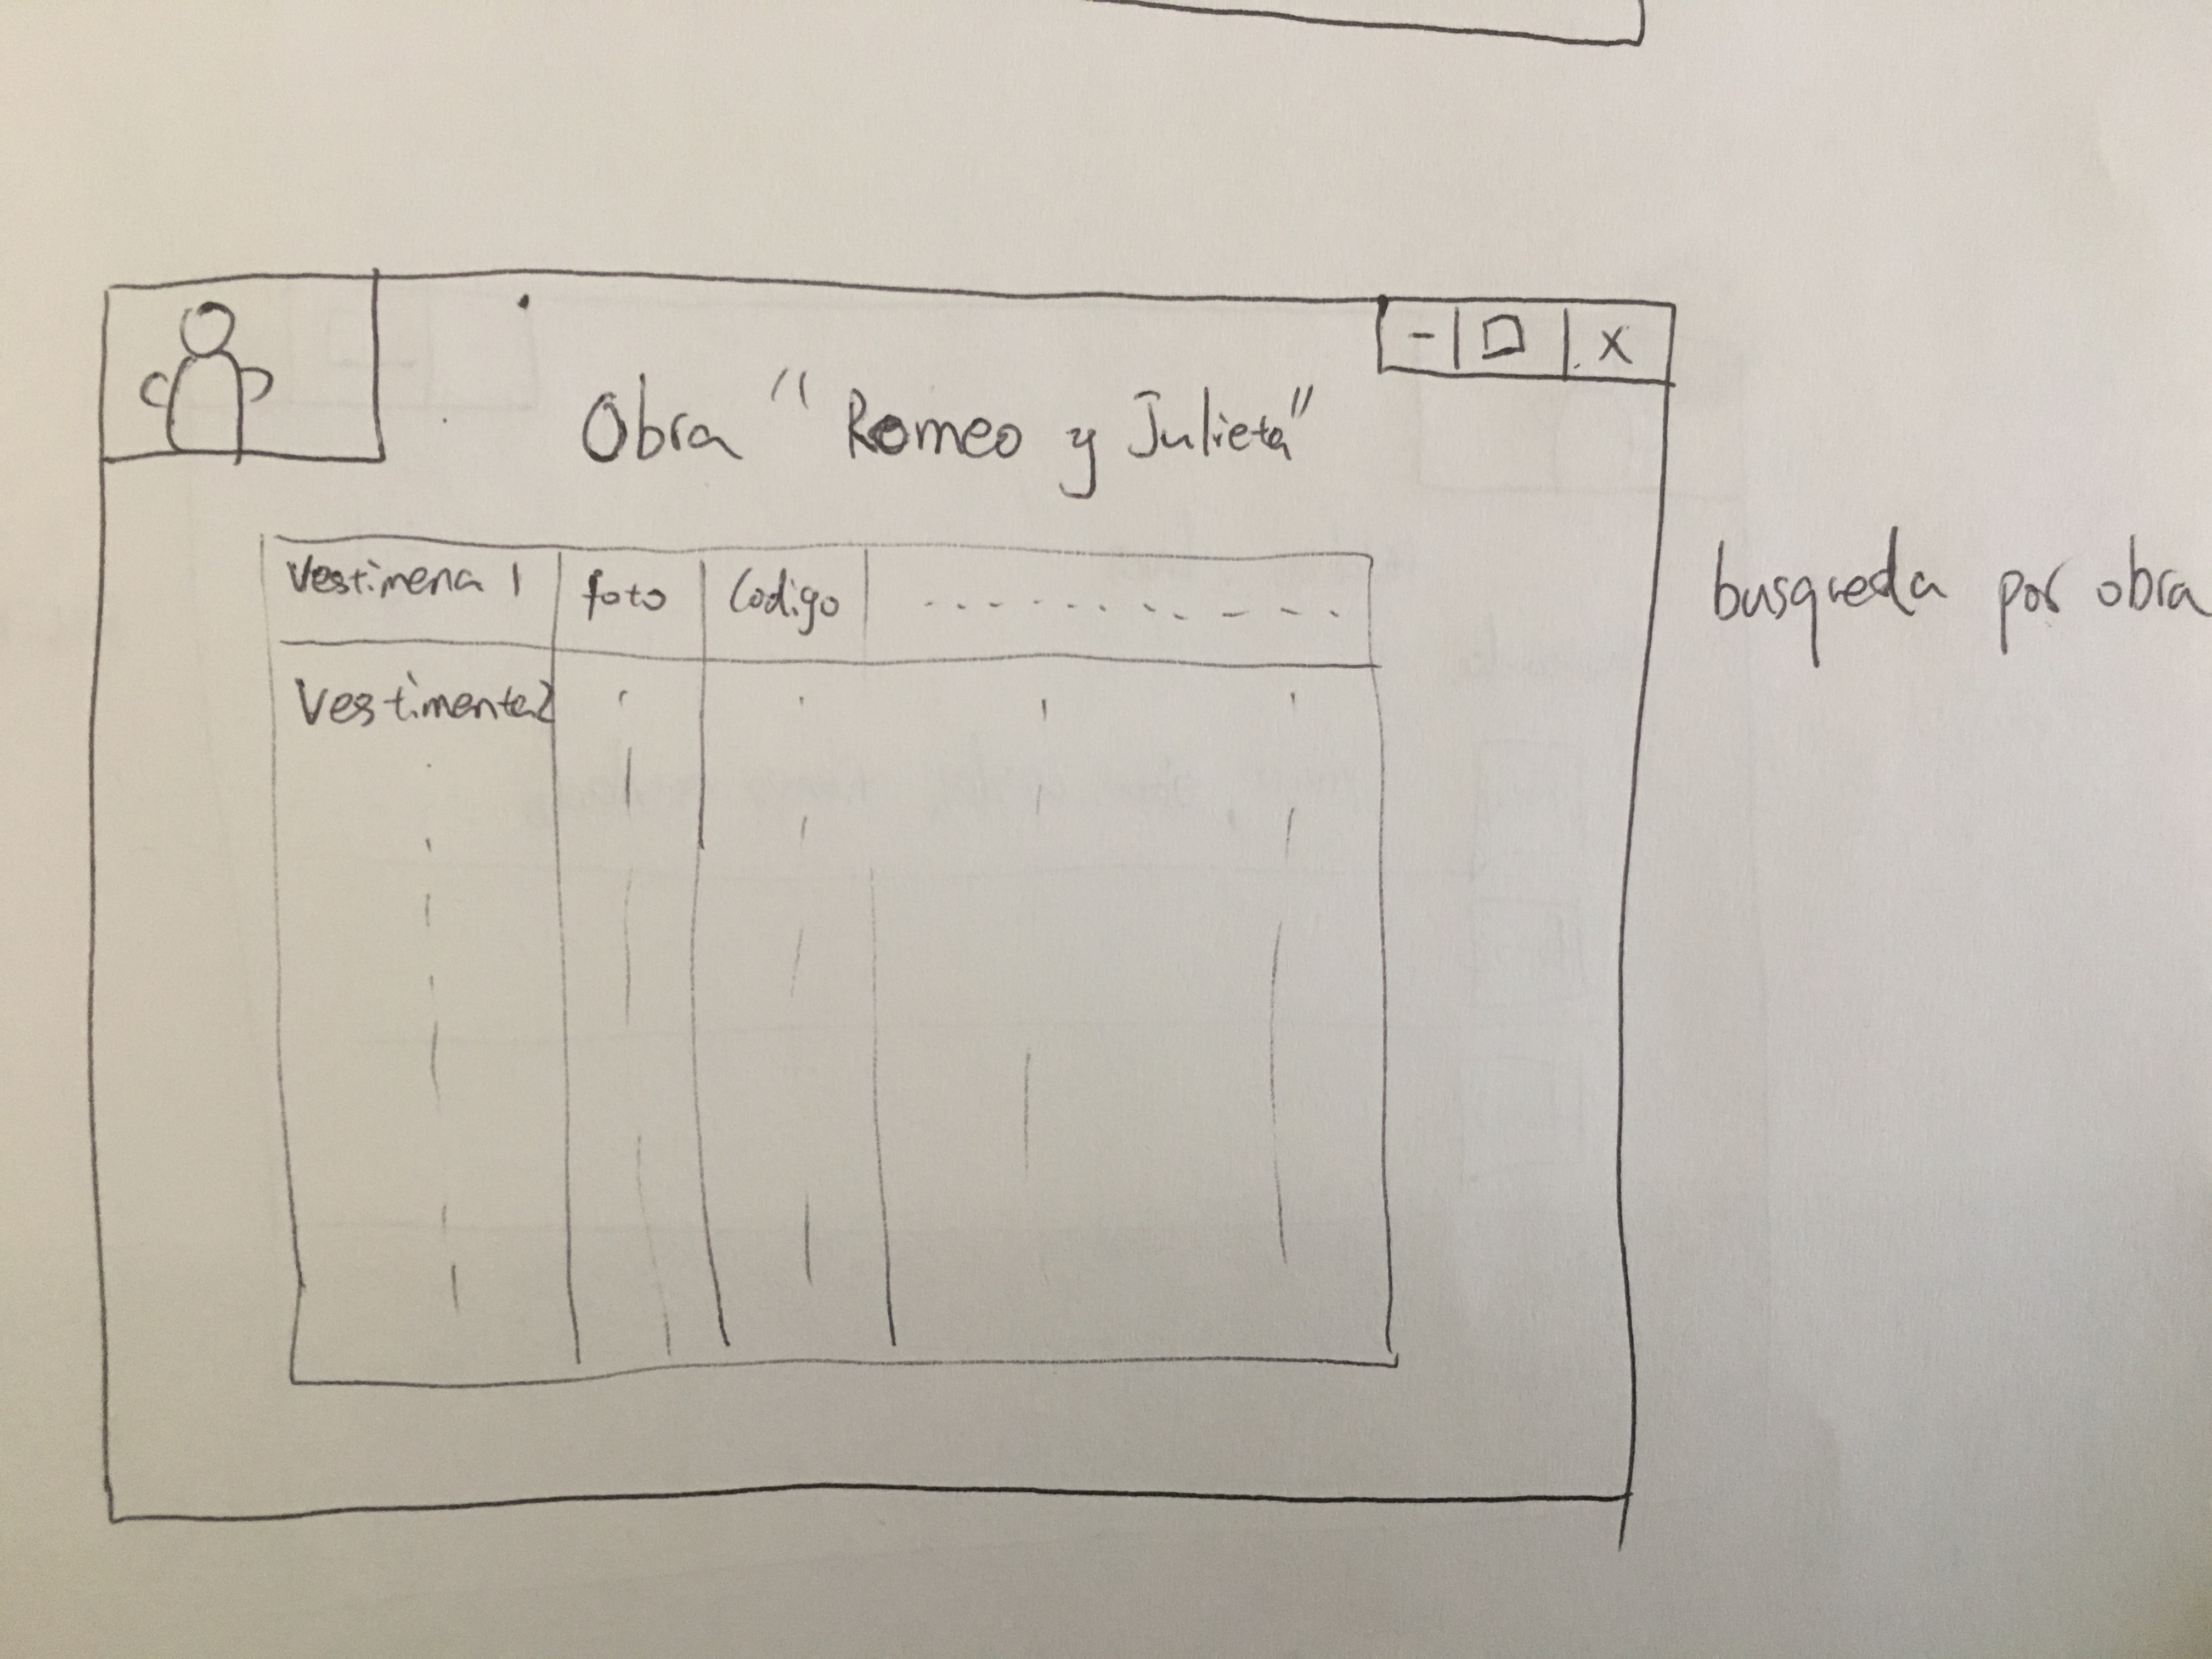 - □ x
Obra "Romeo y Julieta"
Vestimena 1 foto Codigo
Vestimenta2
busqueda por obra